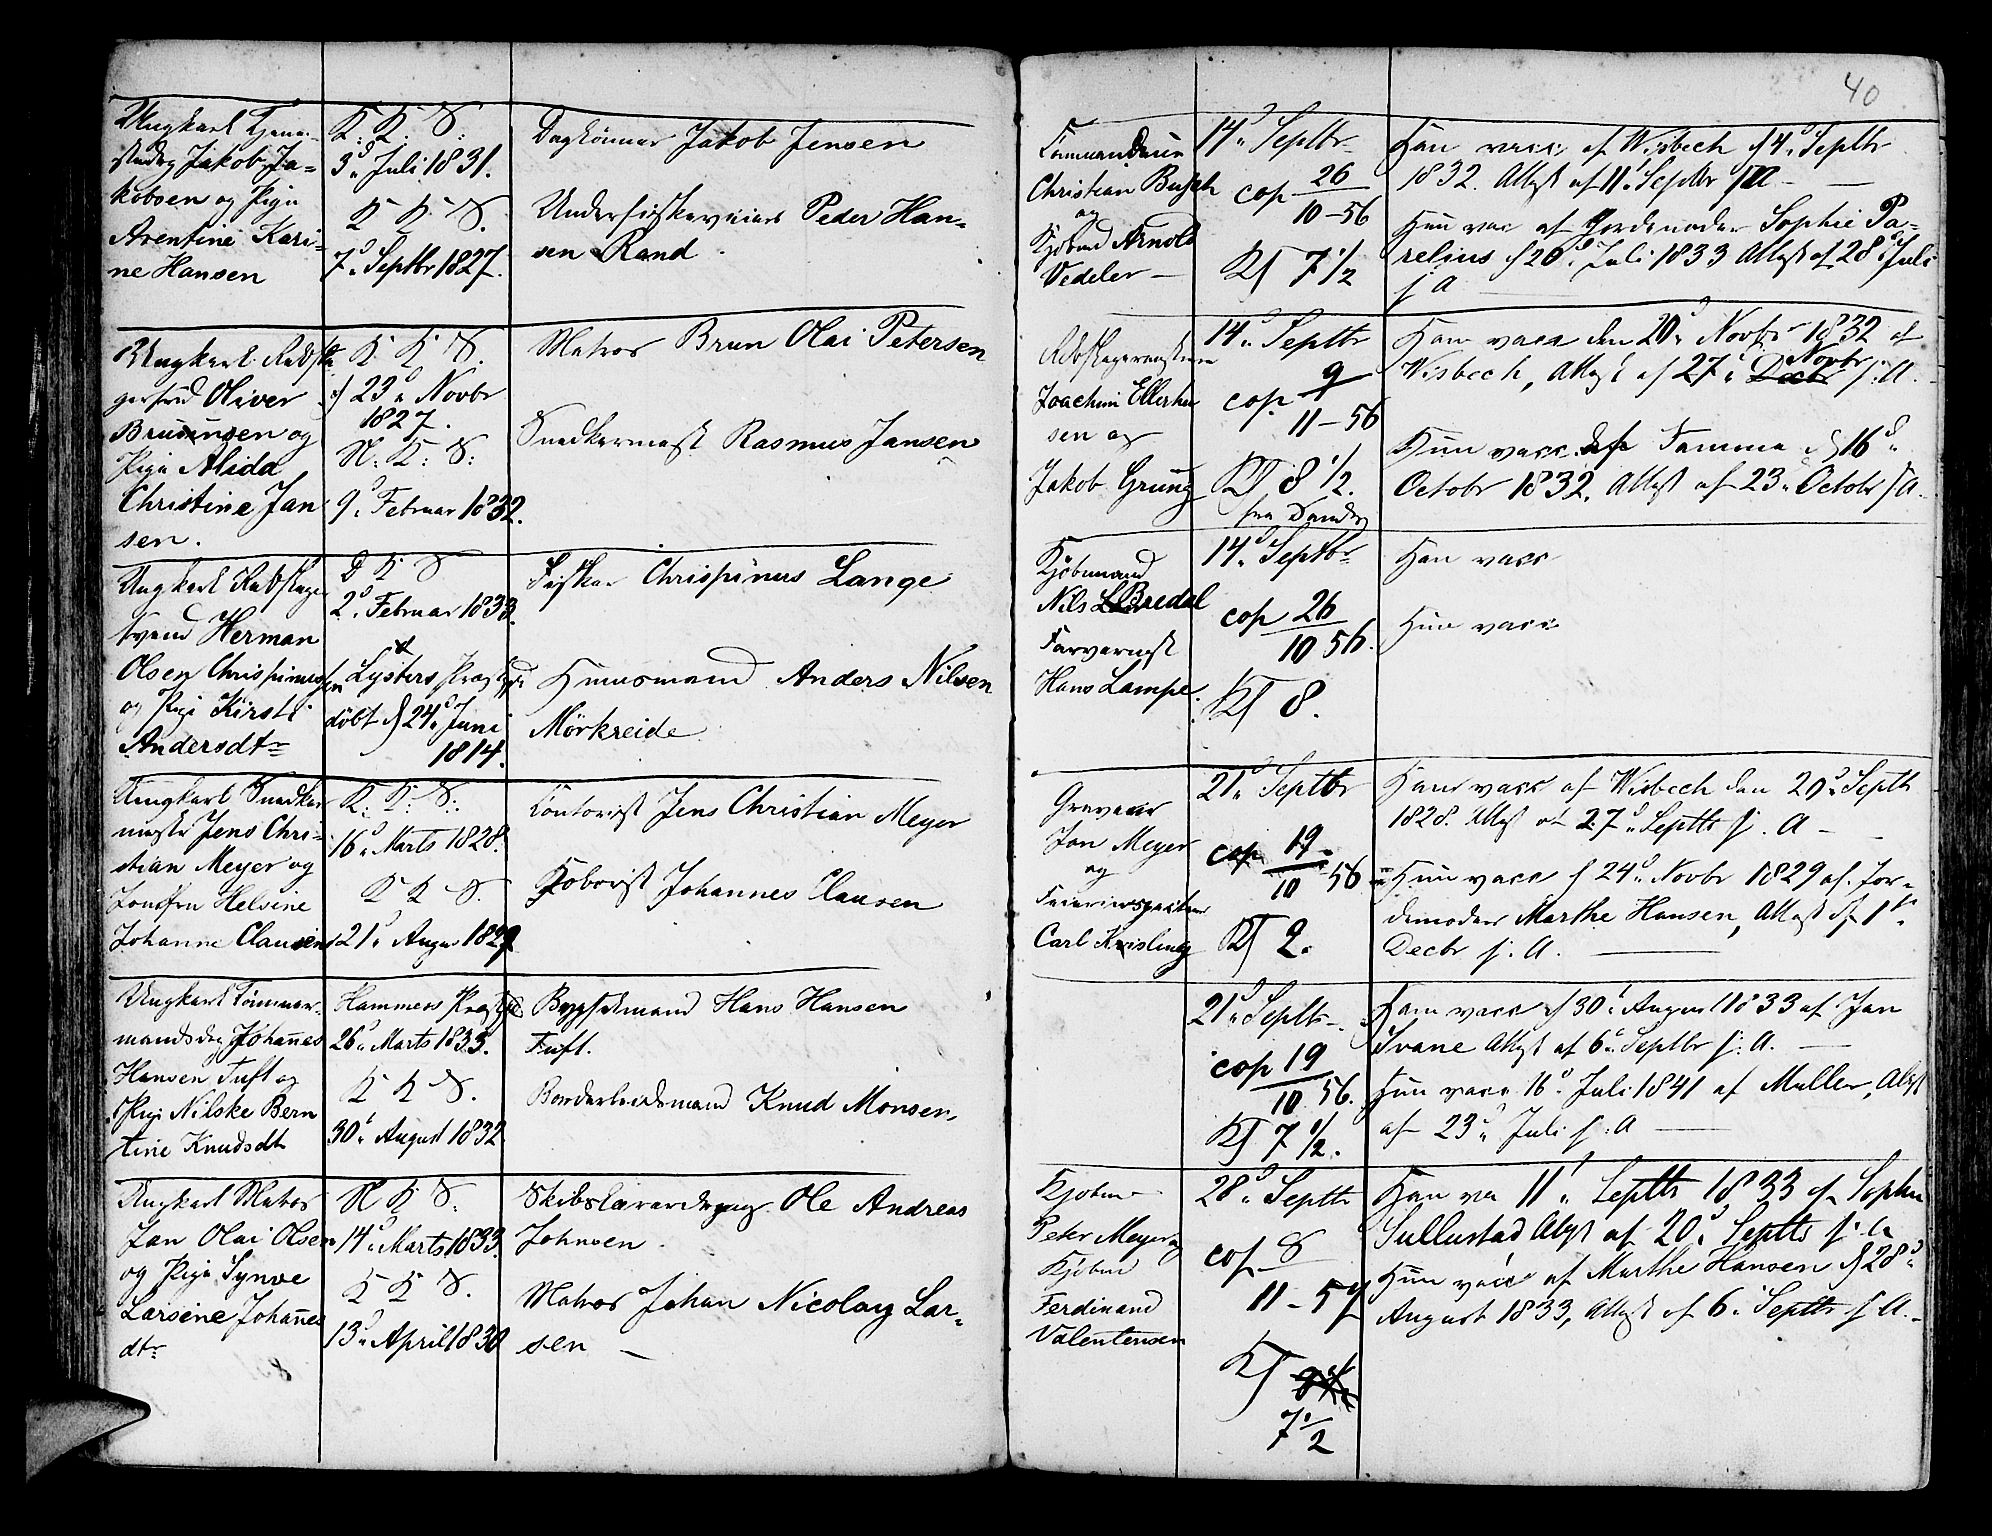 40
Ungkarl Tjene-
stedrg Jakob Ja-
kobsen og Pige
Arentine Kari-
ne Hansen
K. K. S.
3d. Juli 1831.
K K. S.
7d. Septbr 1827.
Dagkonnar Jakob Jensen
Peder Han-
sen Rand
Ungkarl Rebsla
gersvd Oliver
og
Pige Alida
Christine Jan
sen.
K. K S.
d 23d Novbr
1827.
N: K: S:
9d. Februar 1832.
Matros Brun Olai Petersen
Snedkermest Rasmus Jansen
Ungkarl Rebslager
svend Herman
Olsen Chrispinussen
og Pige Kirsti
Andersdtr
D K S
2d. Februar 1833.
Lysters Præstgjd
döbt d 24d. Juni
1814.
Fisker Chrispinus Lange
Huusmand Anders Nilsen
Mörkreide
Ungkarl Snedker
mester Jens Chri-
stian Meyer og
Jomfru Helsine
Johanne Clausen
K. K. S.
16d. Marts 1828.
K K S.
21d. August 1829
Contorist Jens Christian Meyer
Johannes Clausen
Ungkarl Tömmer-
mandsdrg Johannes
Hansen Tuft og
Pige Nilske Bern
tine Knudsdtr
Hammers Præstgjd
26d. Marts 1833.
K K S.
30d. August 1832
Bygselmand Hans Hansen
Tuft.
Bordarbeidsmand Knud Monsen,
Ungkarl Matros
Jan Olai Olsen
og Pige Synve
Larsine Johannes
dtr
N K S.
14d. Marts 1833.
K K S.
13d. April 1830
Ole Andreas
Johnsen
Matros Johan Nicolay Lar-
sen
Christian Busch
og
Kjöbmd Arnold
Vedeler
14d. Septbr
cop 26
10-56
7 1/2
Han vacc af Wisbech d 4d. Septbr
1832. Attest af 11d. Septbr s A
Hun vac af Jordemoder Sophie Pa-
relius d 20d. Juli 1833 Attest af 28d. Juli
s A
Rebslagermestrene
Joachim Ellerhu
sen og
Jakob Grung
14d. Septbr
cop. 9
11-56
8 1/2.
Han vacc den 20d. Novbr 1832 af
Wisbech, Attest af 27d. Decbr Novbr s: A.
Hun vacc af Tamma d 16d.
Octobr 1832. Attest af 23d. Octobr s A.
Kjöbmand
Nils Bredal
Farvermest
Hans Lampe.
14d. Septbr
cop 26
10 56.
8.
Han vacc
Hun vacc
Graveur
Jan Meyer
og
Carl Kuisling
21d. Septbr
cop 19
10 56
2.
Han vacc af Wisbech den 20d. Septb
1828. Attest af 27d. Septbr s. A
Hun vacc d 24d. Novbr 1829 af Jor-
demoder Marthe Hansen, Attest af 1st.
Decbr s. A.
21d. Septbr
cop 19
10 56.
7 1/2.
Han vacc d 30d. August 1833 af Jan
Svane Attest af 6d. Septbr s. A.
Hun vacc 16d. Juli 1841 af Muller, Attest
af 23d. Juli s. A
Kjöbm
Peter Meyer og
Kjöbmd
Ferdinand
Valentinsen
28d. Septbr
cop 8
11-57
7 1/2
Han va 11d. Septbr 1833 af Sophie
Sullustad Attest af 20d. Septbr s. a
Hun vacc af Marthe Hansen d 28d.
August 1833, Attest af 6d. Septbr s A.